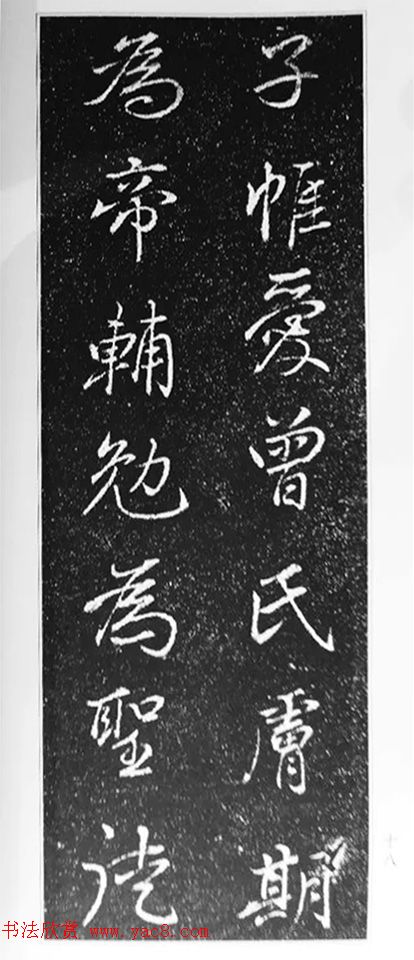 子帷愛曾氏膚期
為帝輔勉為聖徒
十八
书法欣赏 www.yac8.com